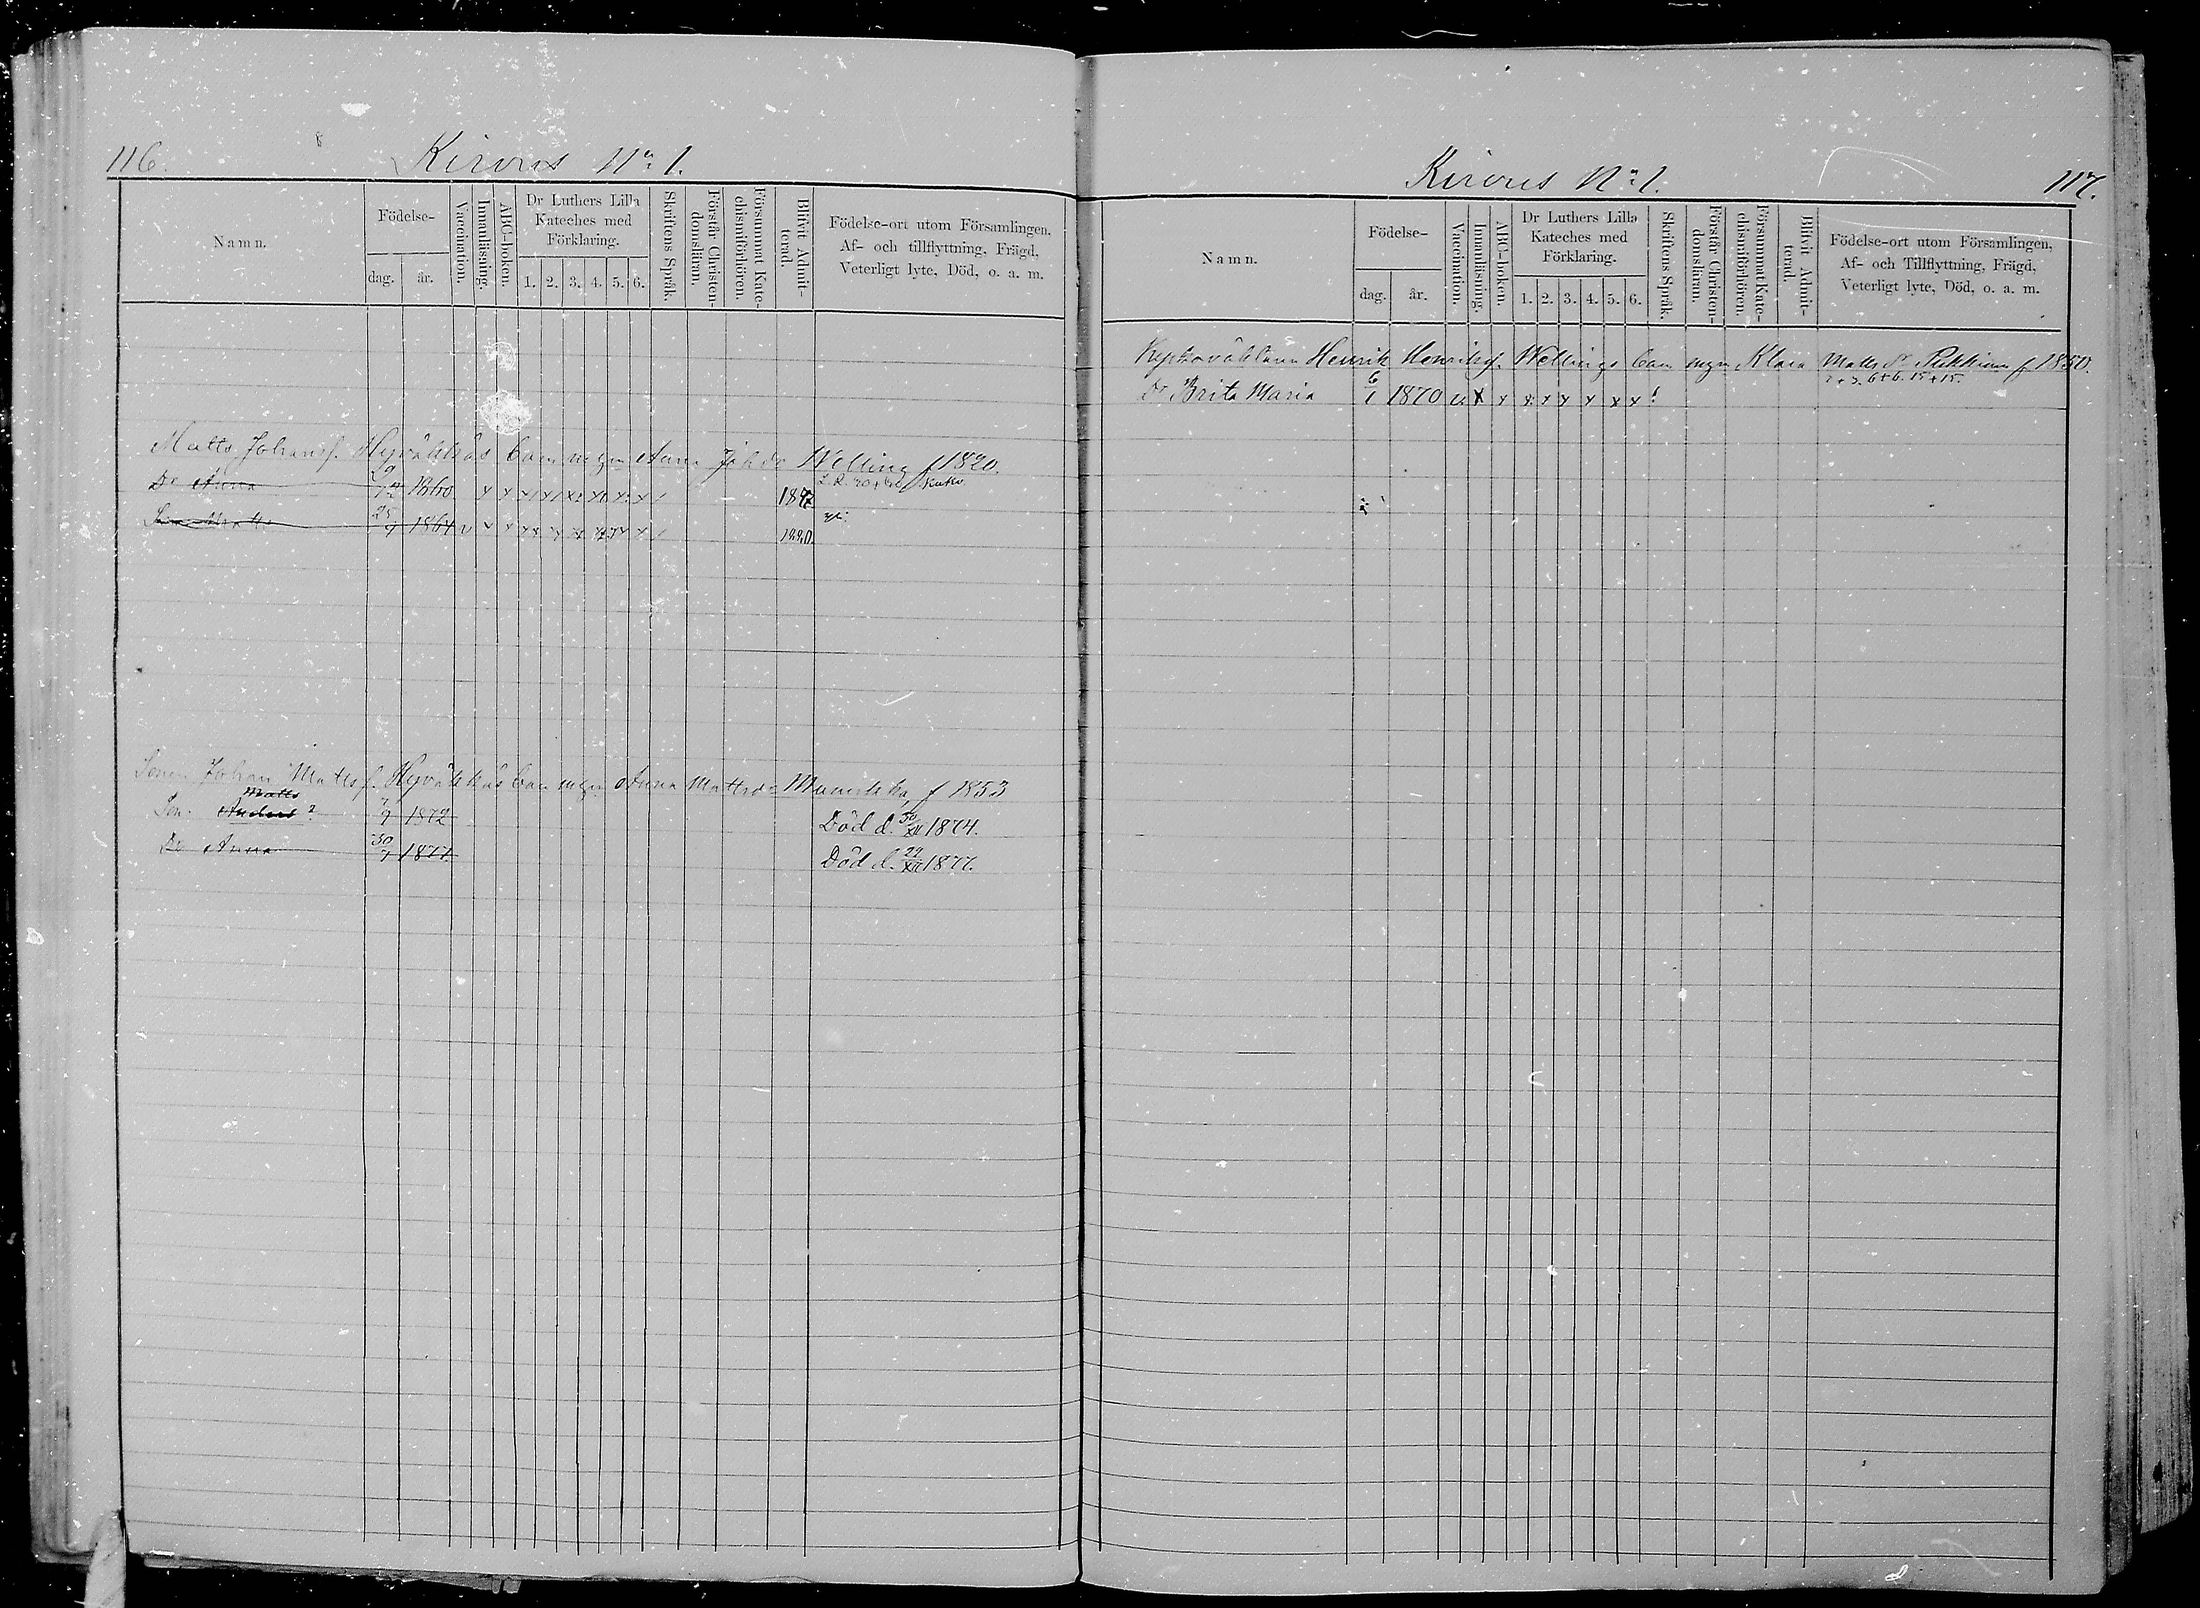 116.
Kirvus No 1.
Namn.
Födelse-
dag.
år.
Vaccination.
Innanläsning.
ABC-boken.
Dr Luthers Lilla Kateches med Förklaring.
1. 2. 3. 4. 5. 6.
Skriftens Språk.
Förstår Christendomsläran.
Försummat Katechismiförhören.
Blifvit Admitterad.
Födelse-ort utom Församlingen,
Af- och tillflyttning, Frägd,
Veterligt lyte, Död, o. a. m.
Matts Johansf. Hyväkkäs barn m. Anna Joh.dr Welling f 1820.
Dr Anna 1860 x x x 1877
Son Matts 25 1864 v x x 1880
Sonen Johan Matts f. Hyväkkäs barn m. Anna Mattsdr f 1853
Matts
Son. Anders? 1872 Död d. 30/XII 1874.
Dr Anna 30 1877 Död d. 22/XII 1877.
Kirvus No 1.
117.
Namn.
Födelse-
dag.
år.
Vaccination.
Innanläsning.
ABC-boken.
Dr Luthers Lilla Kateches med Förklaring.
1. 2. 3. 4. 5. 6.
Skriftens Språk.
Förstår Christendomsläran.
Försummat Katechismiförhören.
Blifvit Admitterad.
Födelse-ort utom Församlingen,
Af- och Tillflyttning, Frägd,
Veterligt lyte, Död, o. a. m.
Henrik Henriksf. Wellings barn m. Klara Matts dr f 1850.
dr Brita Maria 6/1 1870 v x x x x x x x x